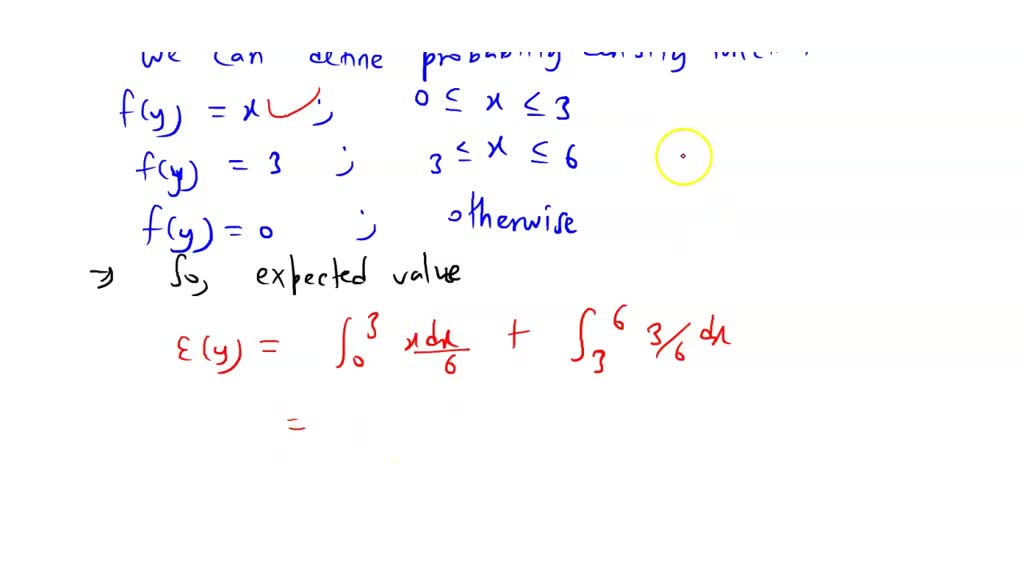 we can define probability density
f(y) = x ; 0 ≤ x ≤ 3
f(y) = 3 ; 3 ≤ x ≤ 6
f(y) = 0 ; otherwise
⇒ So, expected value
E(y) = ∫₀³ x dx/6 + ∫₃⁶ 3/6 dx
=